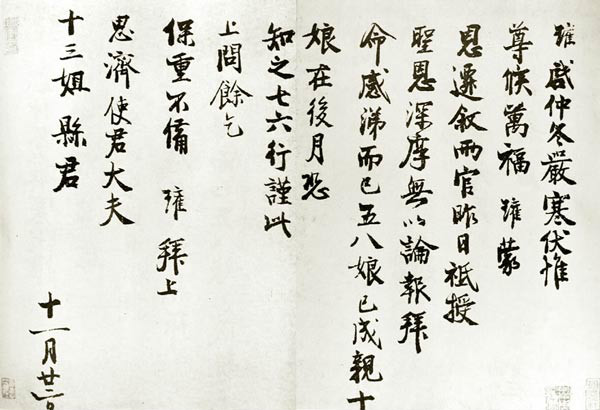 瓘啓仲冬嚴寒伏惟
尊候萬福瓘蒙
恩遷敘兩官昨日祗授
聖恩深厚無以論報拜
命感涕而已五八娘已成親十
娘在後月恐
知之七六行謹此
上問餘乞
保重不備 瓘 拜上
思濟使君大夫
十三姐縣君
十一月廿二日